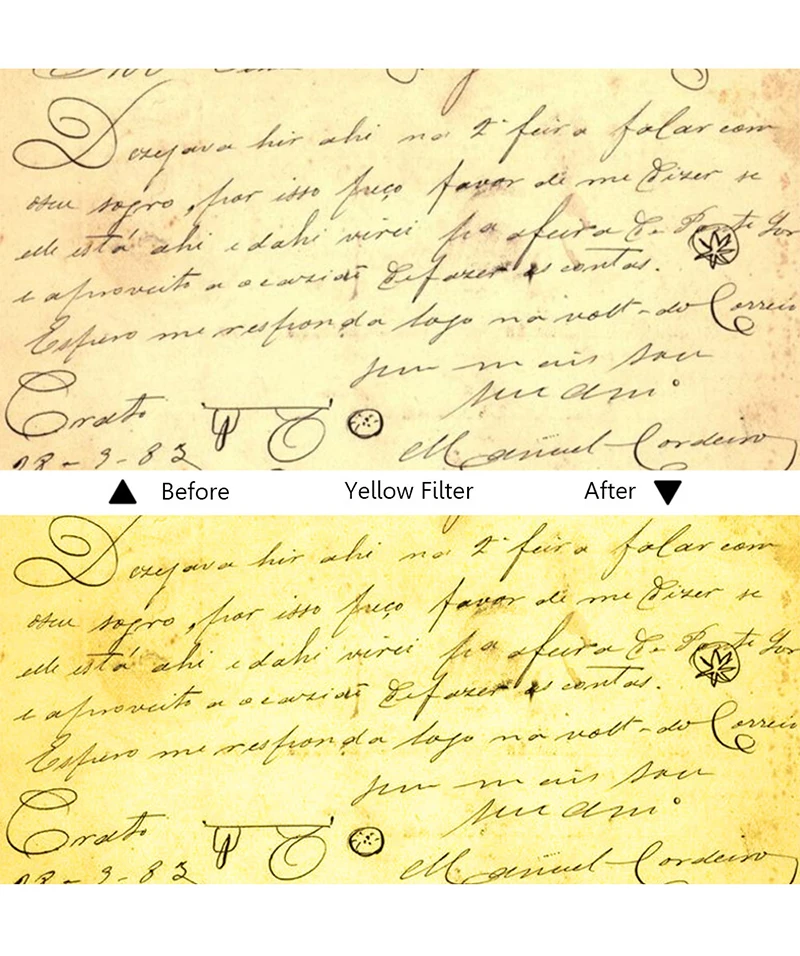 Dezejava hir ahi na 2ª feira falar com
oseu sogro, por isso peço favor de me Dizer se
elle está ahi e dahi virei pa afeira
e aproveito a ocazião Defazer as contas.
Espero me responda logo na volt- do Correio
sem mais sou
seu am°
Crato
28-3-83
Manuel Cordeiro
Before Yellow Filter After
Dezejava hir ahi na 2ª feira falar com
oseu sogro, por isso peço favor de me Dizer se
elle está ahi e dahi virei pa afeira
e aproveito a ocazião Defazer as contas.
Espero me responda logo na volt- do Correio
sem mais sou
seu am°
Crato
28-3-83
Manuel Cordeiro